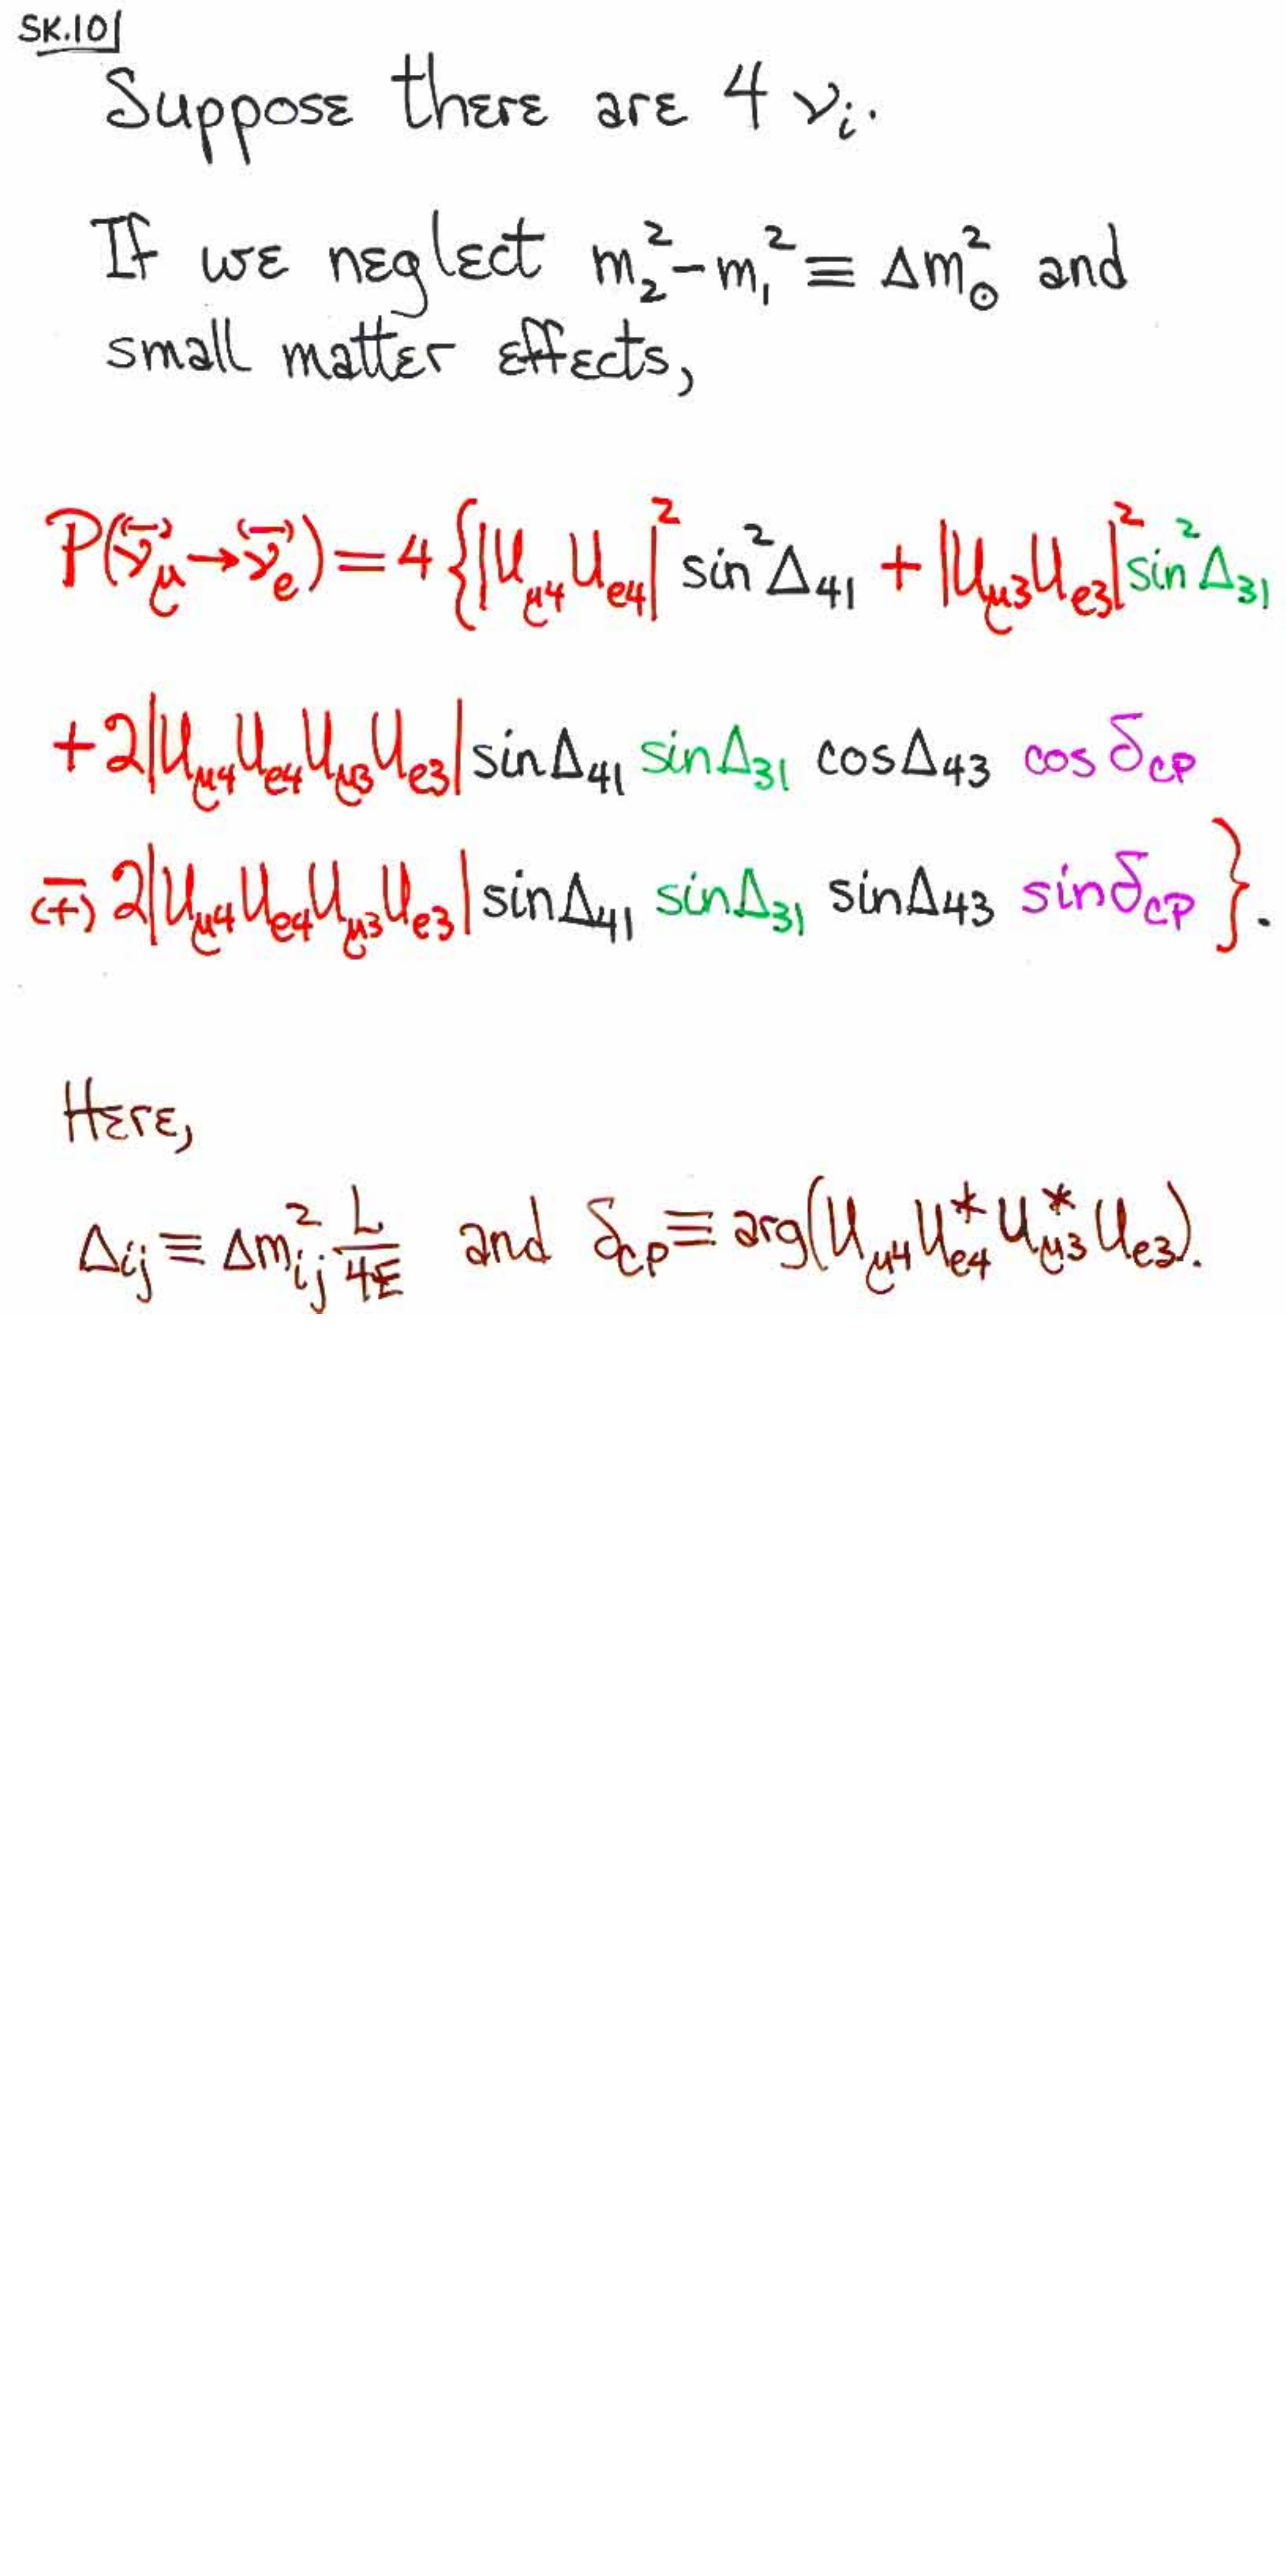 SK.10
Suppose there are 4 νᵢ.
If we neglect m₂² − m₁² ≡ Δm²⊙ and
small matter effects,
P(ν̄μ^(−) → ν̄e^(−)) = 4 {|Uμ4 Ue4|² sin²Δ₄₁ + |Uμ3 Ue3|² sin²Δ₃₁
+ 2|Uμ4 Ue4 Uμ3 Ue3| sinΔ₄₁ sinΔ₃₁ cosΔ₄₃ cos δCP
−(+) 2|Uμ4 Ue4 Uμ3 Ue3| sinΔ₄₁ sinΔ₃₁ sinΔ₄₃ sin δCP }.
Here,
Δij ≡ Δm²ij L/4E and δCP ≡ arg(Uμ4 U*e4 U*μ3 Ue3).